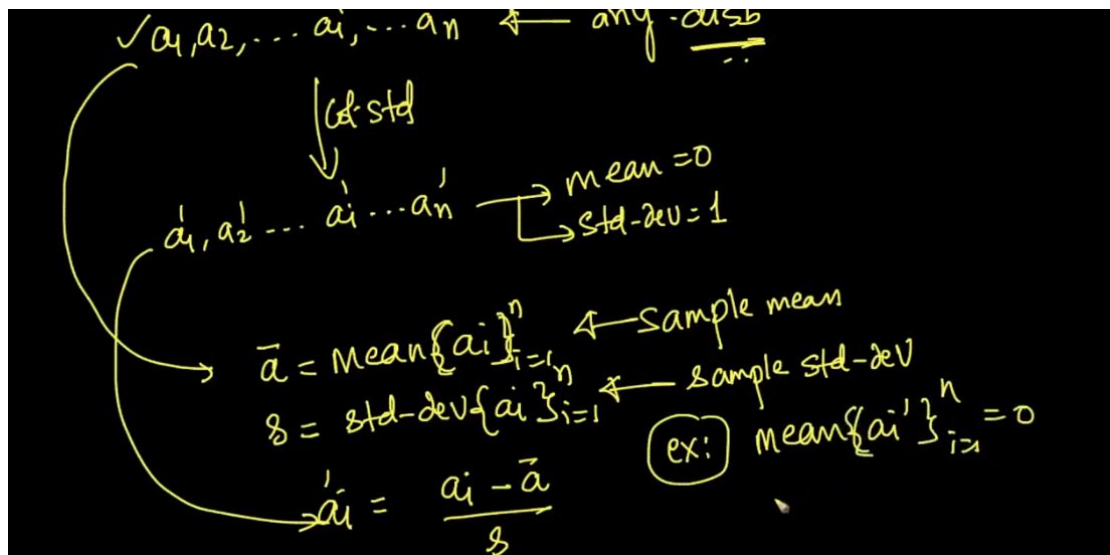 ✓ a1, a2, ... ai, ... an ← any disb
col-std
a1', a2' ... ai' ... an' → mean = 0
→ std-dev = 1
ā = mean{ai}ⁿi=1 ← sample mean
s = std-dev{ai}ⁿi=1 ← sample std-dev
ex: mean{ai'}ⁿi=1 = 0
ai' = (ai - ā) / s